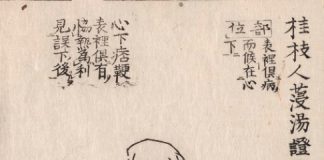 桂枝人薓湯證
部表裡俱病
位而候在心
下
心下痞鞕
表裡俱有
協熱利
見誤下後